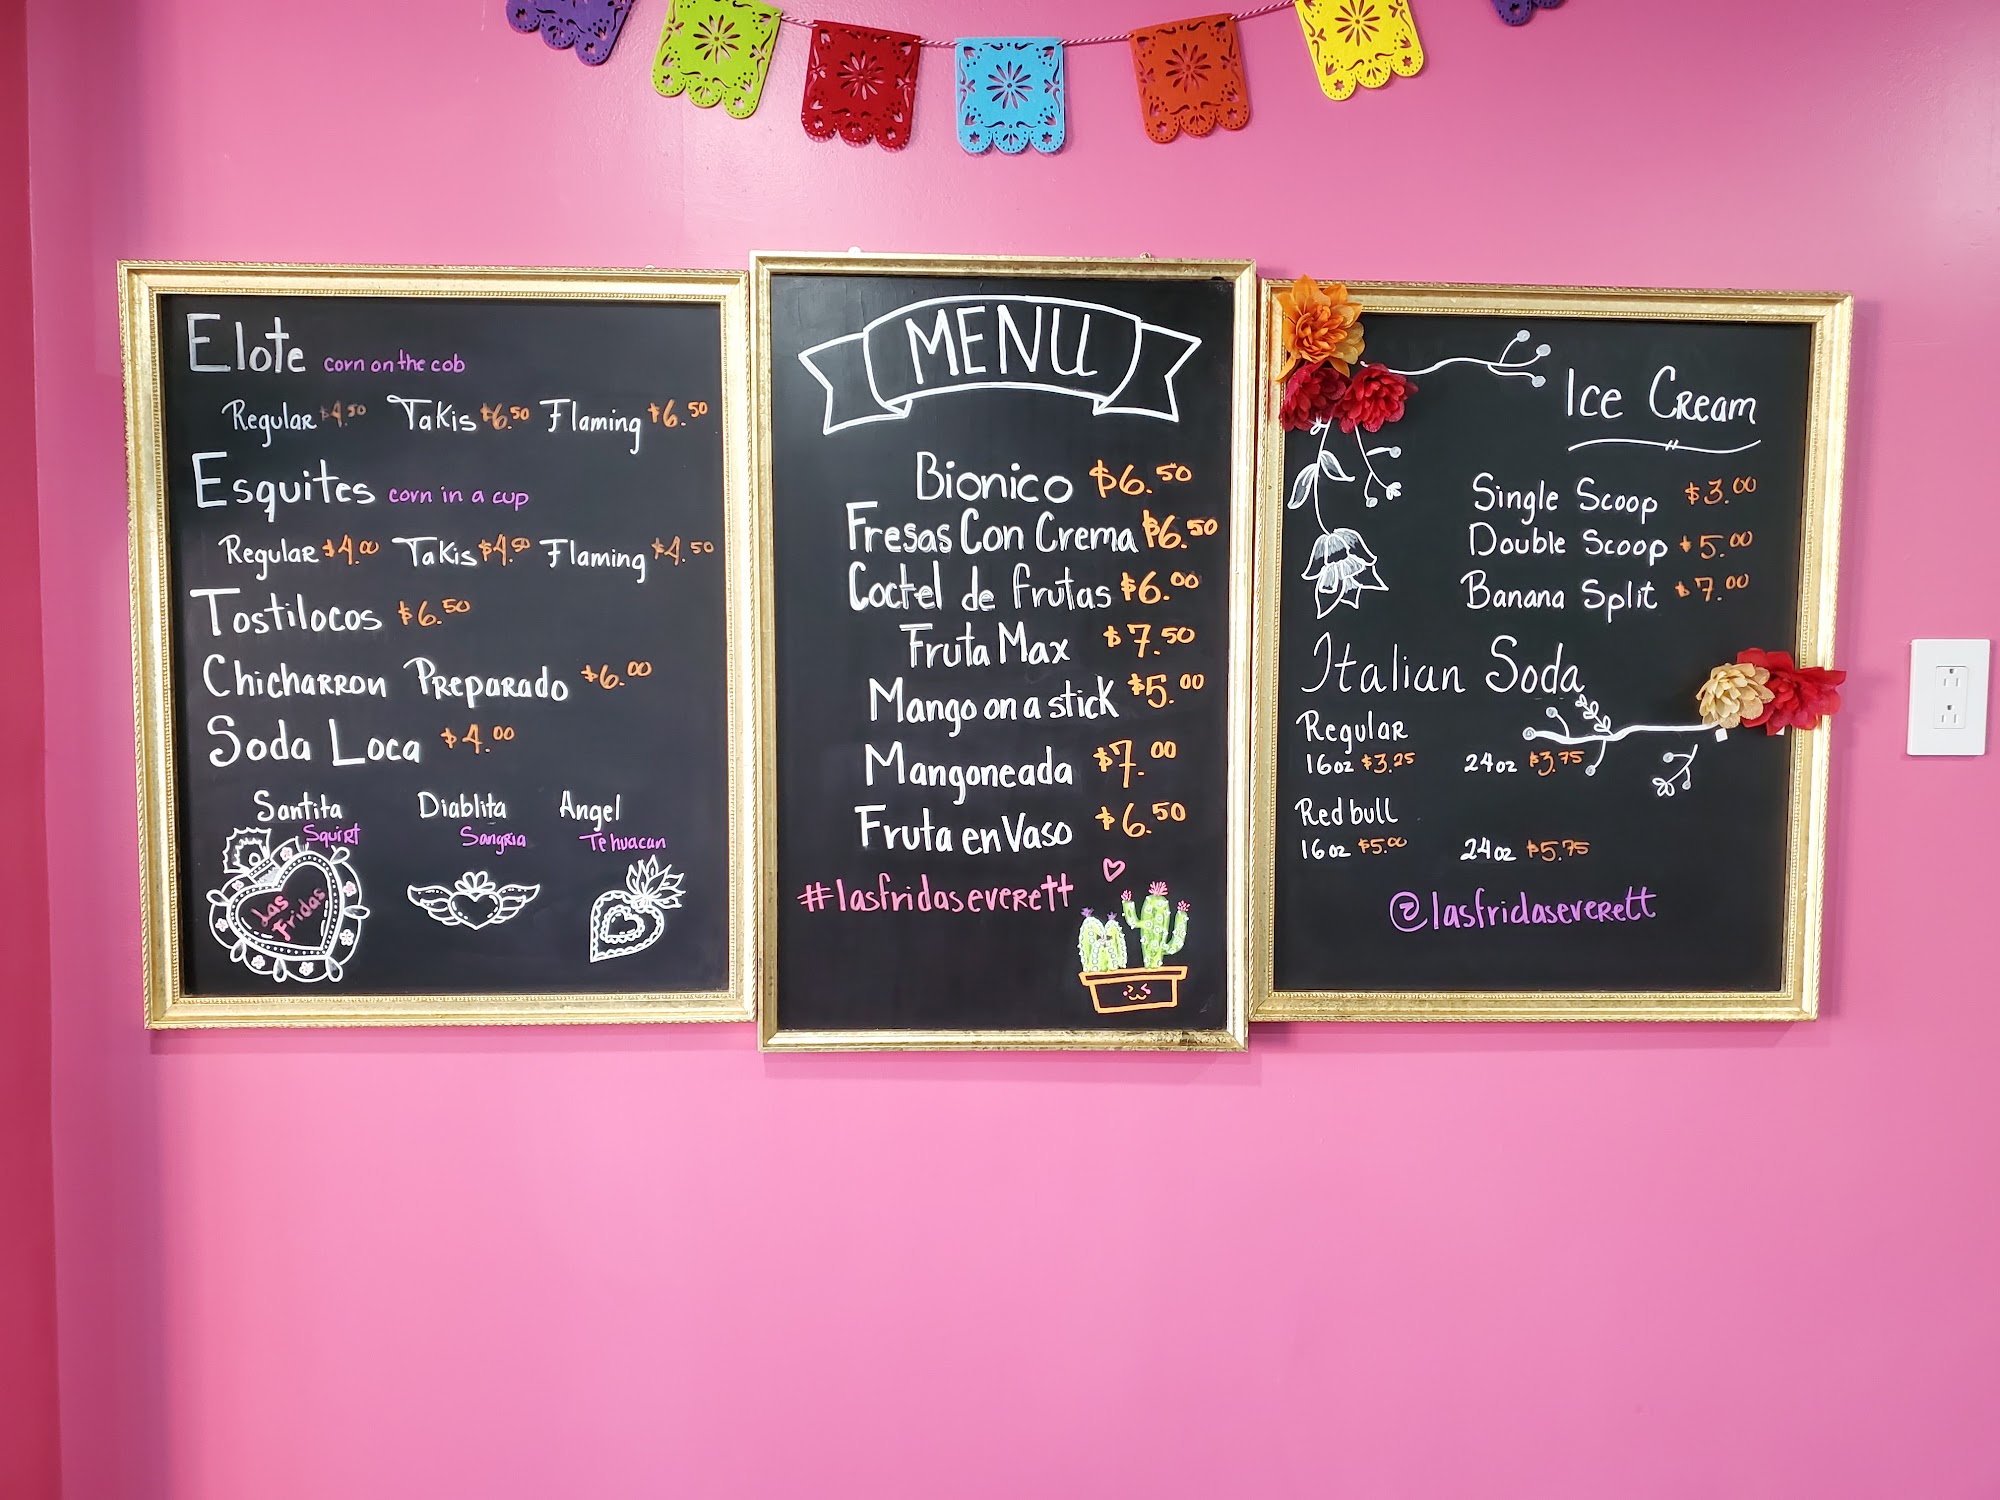 Elote corn on the cob
Regular $4.50 Takis $6.50 Flaming $6.50
Esquites corn in a cup
Regular $4.00 Takis $4.50 Flaming $4.50
Tostilocos $6.50
Chicharron Preparado $6.00
Soda Loca $4.00
Santita Diablita Angel
Squirt Sangria Tehuacan
Las Fridas
MENU
Bionico $6.50
Fresas Con Crema $6.50
Coctel de frutas $6.00
Fruta Max $7.50
Mango on a stick $5.00
Mangoneada $7.00
Fruta en Vaso $6.50
#lasfridaseverett
Ice Cream
Single Scoop $3.00
Double Scoop $5.00
Banana Split $7.00
Italian Soda
Regular
16oz $3.25 24oz $3.75
Red bull
16oz $5.00 24oz $5.75
@lasfridaseverett